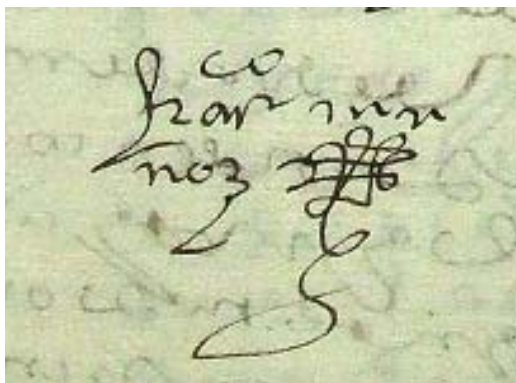 franco mun
noz